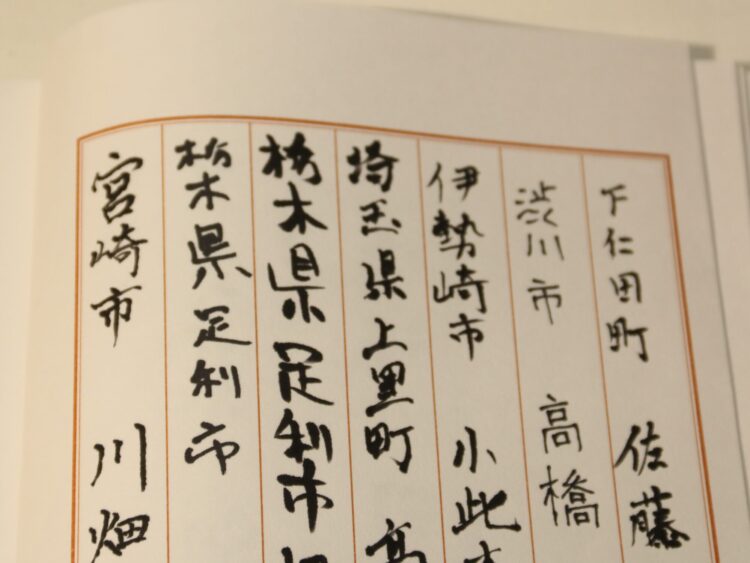 下仁田町 佐藤
渋川市 高橋
伊勢崎市 小此
埼玉県上里町 高
栃木県足利市
栃木県足利市
宮崎市 川畑